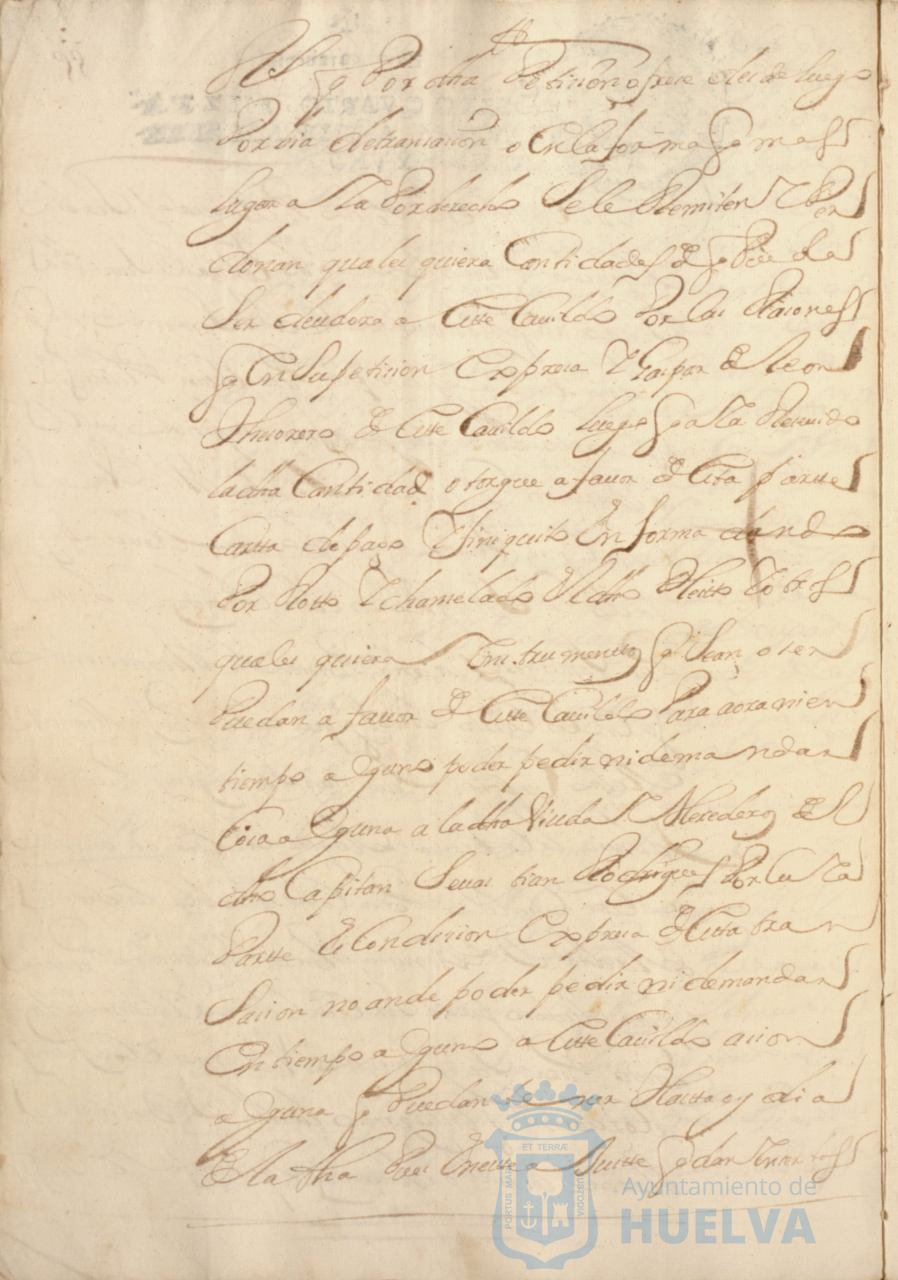 q Por dha Peticion ofrece desde luego
Por via de transacion o en la forma q mas
lugar a Ya Por derecho Se le Remiten Y Per
donan quales quiera Cantidades de q Pue da
Ser deudora a Este Cauildo Por las Raciones
q En Su peticion Expresa Y Gaspar de leon
thesorero de Este Cauildo luego q a Ya Receuido
la dha Cantidad otorgue a fauor de Esta parte
Cartta de pago Y finiquito En forma dando
Por Rotto Y chanselado El dho Pleito Y otros
quales quiera Ynstrumentos q Sean o ser
Puedan a fauor de Este Cauildo Para aora ni en
tiempo alguno poder pedir ni demandar
Cosa alguna a la dha Viuda Y Herederos del
dho Capitan Seuastian Rodrigues Por Cu Ya
Partte Es Condision Expresa de Esta tran
Sacion no an de poder pedir ni demandar
En tiempo alguno a Este Cauildo acion
alguna q Puedan tener Hasta oy dia
de la fha Pues En este a Juste q dan
ET TERRÆ
PORTUS MARIS
CUSTODIA
Ayuntamiento de
HUELVA